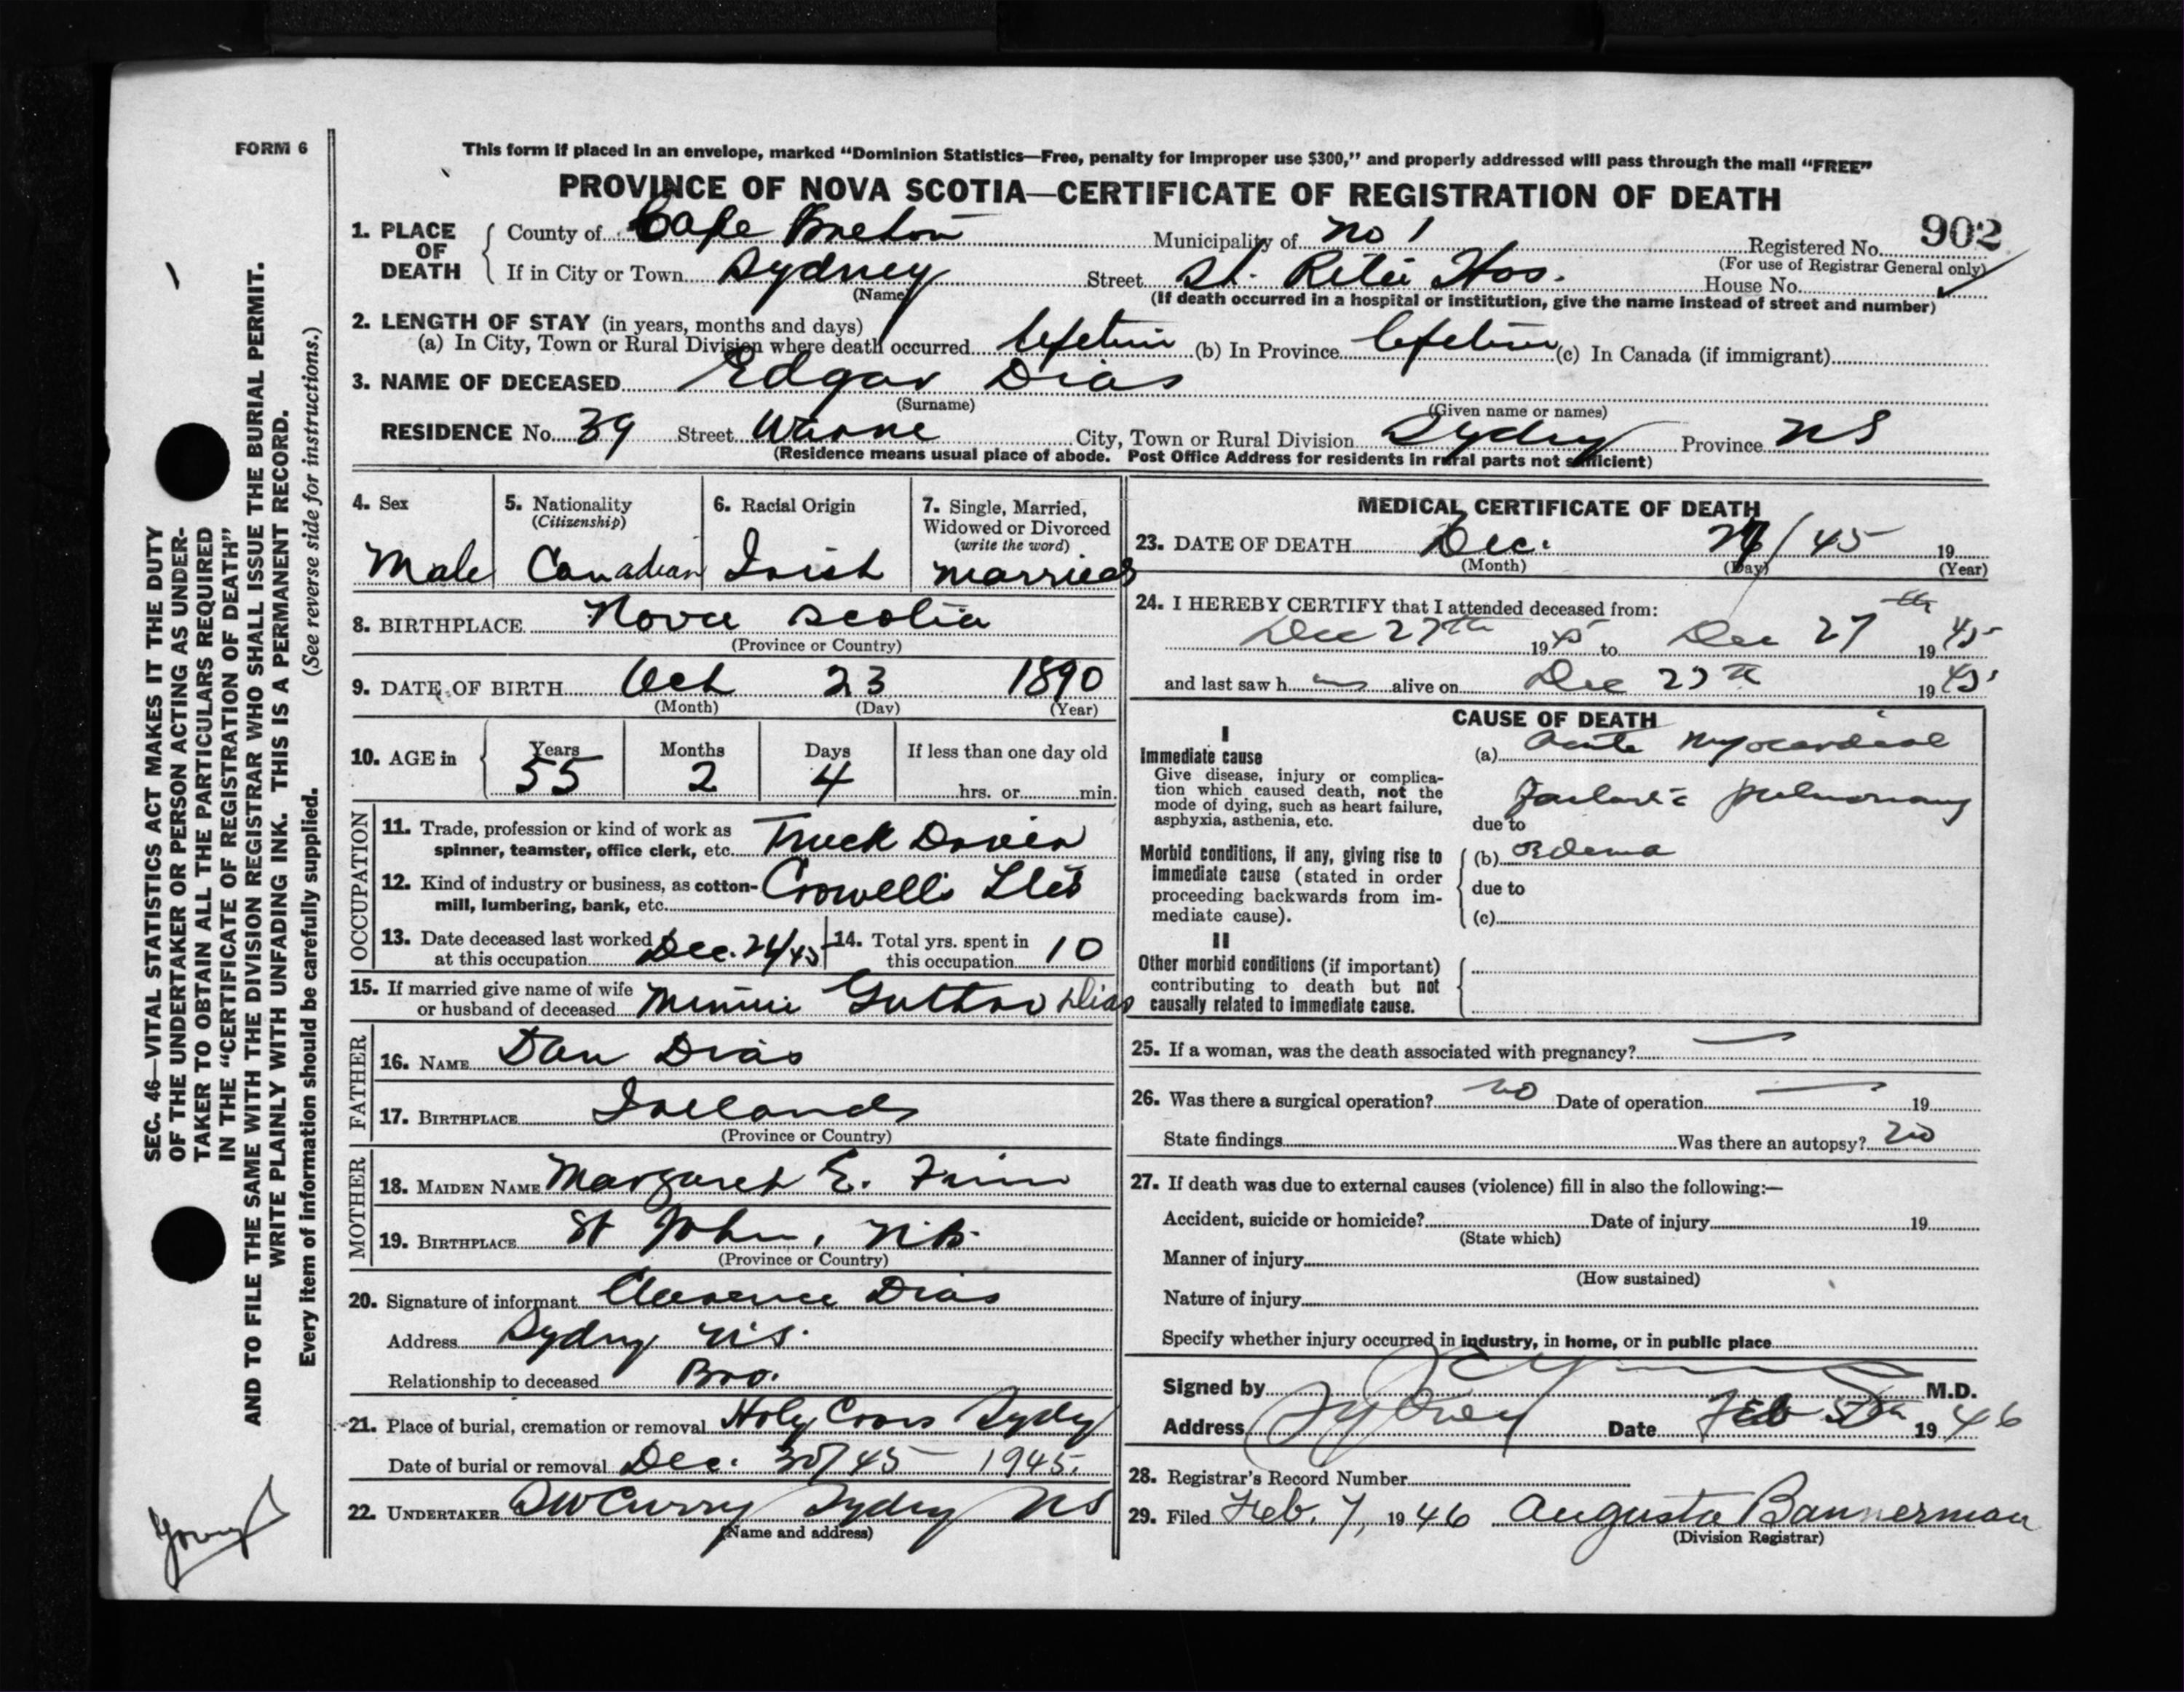 FORM 6
This form if placed in an envelope, marked “Dominion Statistics—Free, penalty for improper use $300,” and properly addressed will pass through the mail “FREE”
PROVINCE OF NOVA SCOTIA—CERTIFICATE OF REGISTRATION OF DEATH
902
1. PLACE OF DEATH County of Cape Breton Municipality of No 1 Registered No.
(For use of Registrar General only)
If in City or Town Sydney Street St. Rita Hos. House No.
(Name) (If death occurred in a hospital or institution, give the name instead of street and number)
2. LENGTH OF STAY (in years, months and days)
(a) In City, Town or Rural Division where death occurred (b) In Province (c) In Canada (if immigrant)
3. NAME OF DECEASED Edgar Dias
(Surname) (Given name or names)
RESIDENCE No. 39 Street City, Town or Rural Division Sydney Province NS
(Residence means usual place of abode. Post Office Address for residents in rural parts not sufficient)
4. Sex
Male
5. Nationality
(Citizenship)
Canadian
6. Racial Origin
Irish
7. Single, Married,
Widowed or Divorced
(write the word)
married
8. BIRTHPLACE Nova Scotia
(Province or Country)
9. DATE OF BIRTH Oct 23 1890
(Month) (Day) (Year)
10. AGE in Years Months Days If less than one day old
55 2 4 hrs. or min.
OCCUPATION
11. Trade, profession or kind of work as
spinner, teamster, office clerk, etc. Truck Driver
12. Kind of industry or business, as cotton-
mill, lumbering, bank, etc. Crowell's Ltd
13. Date deceased last worked
at this occupation Dec. 24/45
14. Total yrs. spent in
this occupation 10
15. If married give name of wife
or husband of deceased Minnie Dias
FATHER
16. NAME Dan Dias
17. BIRTHPLACE Ireland
(Province or Country)
MOTHER
18. MAIDEN NAME Margaret E.
19. BIRTHPLACE St John, N.B.
(Province or Country)
20. Signature of informant Clarence Dias
Address Sydney N.S.
Relationship to deceased Bro.
21. Place of burial, cremation or removal Holy Cross Sydney
Date of burial or removal Dec. 30/45 1945.
22. UNDERTAKER Curry Sydney NS
(Name and address)
MEDICAL CERTIFICATE OF DEATH
23. DATE OF DEATH Dec. /45 19
(Month) (Day) (Year)
24. I HEREBY CERTIFY that I attended deceased from:
Dec 27th 1945 to Dec 27th 1945
and last saw h im alive on Dec 27th 1945
CAUSE OF DEATH
I
Immediate cause
Give disease, injury or complica-
tion which caused death, not the
mode of dying, such as heart failure,
asphyxia, asthenia, etc.
(a) Acute Myocardial
Failure c̄ pulmonary
due to
Morbid conditions, if any, giving rise to
immediate cause (stated in order
proceeding backwards from im-
mediate cause).
(b) Edema
due to
(c)
II
Other morbid conditions (if important)
contributing to death but not
causally related to immediate cause.
25. If a woman, was the death associated with pregnancy? —
26. Was there a surgical operation? no Date of operation — 19
State findings Was there an autopsy? no
27. If death was due to external causes (violence) fill in also the following:—
Accident, suicide or homicide? Date of injury 19
(State which)
Manner of injury
(How sustained)
Nature of injury
Specify whether injury occurred in industry, in home, or in public place
Signed by M.D.
Address Sydney Date Feb 5th 1946
28. Registrar's Record Number
29. Filed Feb. 7, 1946 Augusta Bannerman
(Division Registrar)
SEC. 46—VITAL STATISTICS ACT MAKES IT THE DUTY
OF THE UNDERTAKER OR PERSON ACTING AS UNDER-
TAKER TO OBTAIN ALL THE PARTICULARS REQUIRED
IN THE “CERTIFICATE OF REGISTRATION OF DEATH”
AND TO FILE THE SAME WITH THE DIVISION REGISTRAR WHO SHALL ISSUE THE BURIAL PERMIT.
WRITE PLAINLY WITH UNFADING INK. THIS IS A PERMANENT RECORD.
Every item of information should be carefully supplied. (See reverse side for instructions.)